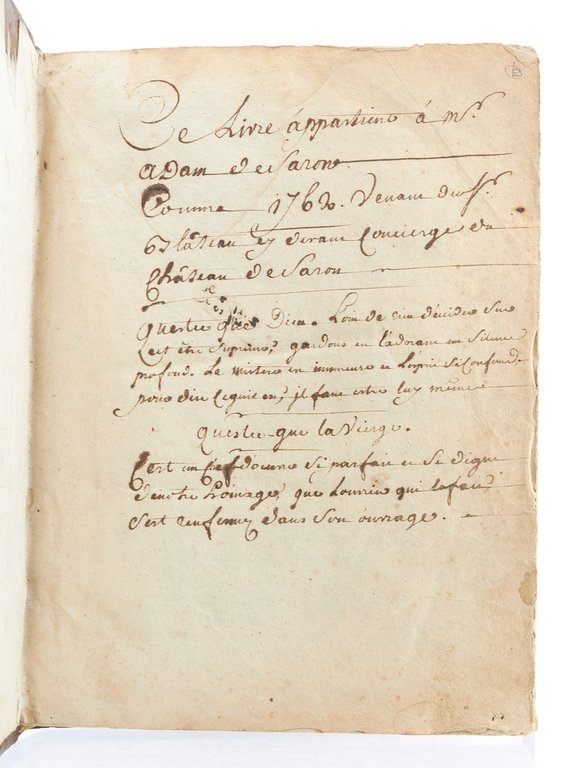 Ce Livre appartient á mr.
adam de Saron
Comme 1762. Venant du Sr.
Château cy devant Concierge du
Château de Saron
questce que Dieu. Loin de rien décider sur
cest être Suprême, gardons en l'adorant un Silence
profond. Le mistere en immense et l'esprit se Confond.
pour dire ce quil en, il faut estre luy même
questce que la Vierge.
C'est un Chefdoeuvre si parfait et si digne
denotre homage, que Louvrier qui lafait,
Sest renfermez dans son ouvrage.